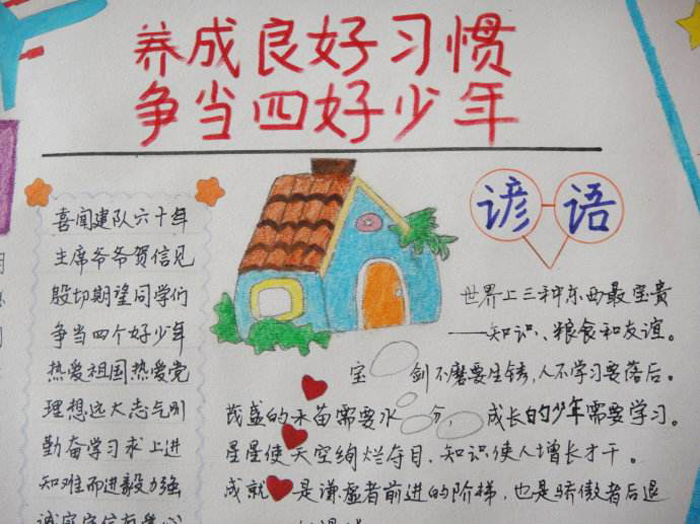 养成良好习惯
争当四好少年
喜闻建队六十年
主席爷爷贺信见
殷切期望同学们
争当四个好少年
热爱祖国热爱党
理想远大志气刚
勤奋学习求上进
知难而进毅力强
诚实守信有
谚语
世界上三种东西最宝贵
——知识、粮食和友谊。
宝剑不磨要生锈,人不学习要落后。
茂盛的禾苗需要水分, 成长的少年需要学习。
星星使天空绚烂夺目,知识使人增长才干。
成就是谦虚者前进的阶梯,也是骄傲者后退